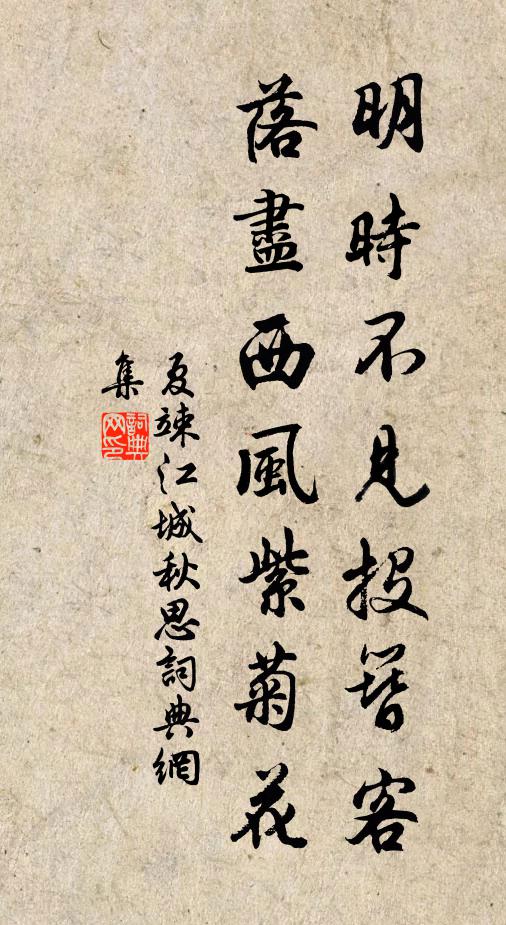 明時不見投簪客
落盡西風紫菊花
夏竦江城秋思詞典網
集
詞典
网印